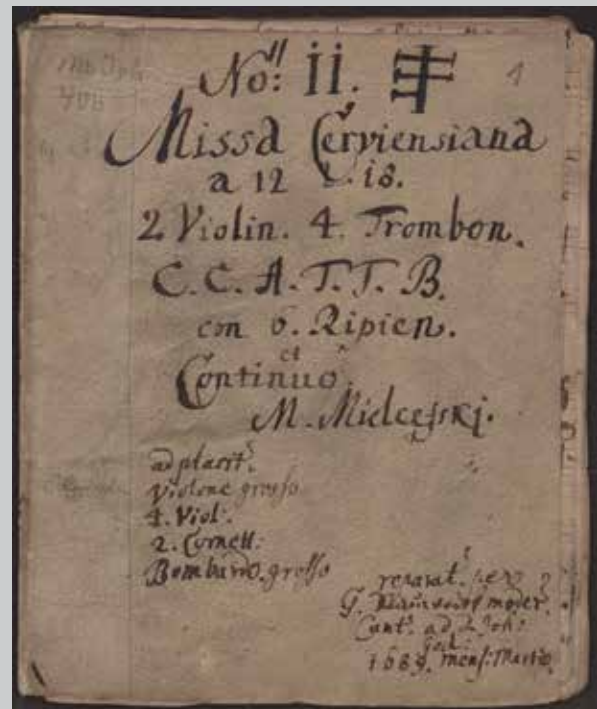 No: ii. 1
Missa Cerviensiana
a 12 & 18.
2 Violin. 4. Trombon.
C. C. A. T. T. B.
con 6. Ripien.
et
Continuo.
M. Mielcejski.
ad placit:
Violone grosso
4. Viol:
2. Cornett:
Bombardo. grosso
renovat. per
G. moder.
Cant. ad S. Joh:
1689. mens: Martio